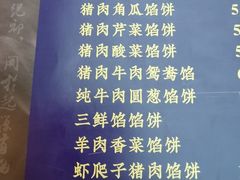 猪肉角瓜馅饼 5
猪肉芹菜馅饼
猪肉酸菜馅饼 5
猪肉牛肉鸳鸯馅
纯牛肉圆葱馅饼
三鲜馅馅饼
羊肉香菜馅饼
虾爬子猪肉馅饼 1